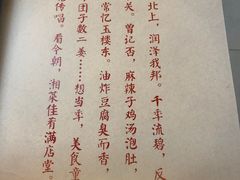 北上，润泽我邦。千年流鹅，反
关。曾记否，麻辣子鸡汤泡肚，
常忆玉楼东。油炸豆腐臭而香，
团子数二姜……想当年，美食童
传唱。看今朝，湘菜佳肴满店堂。